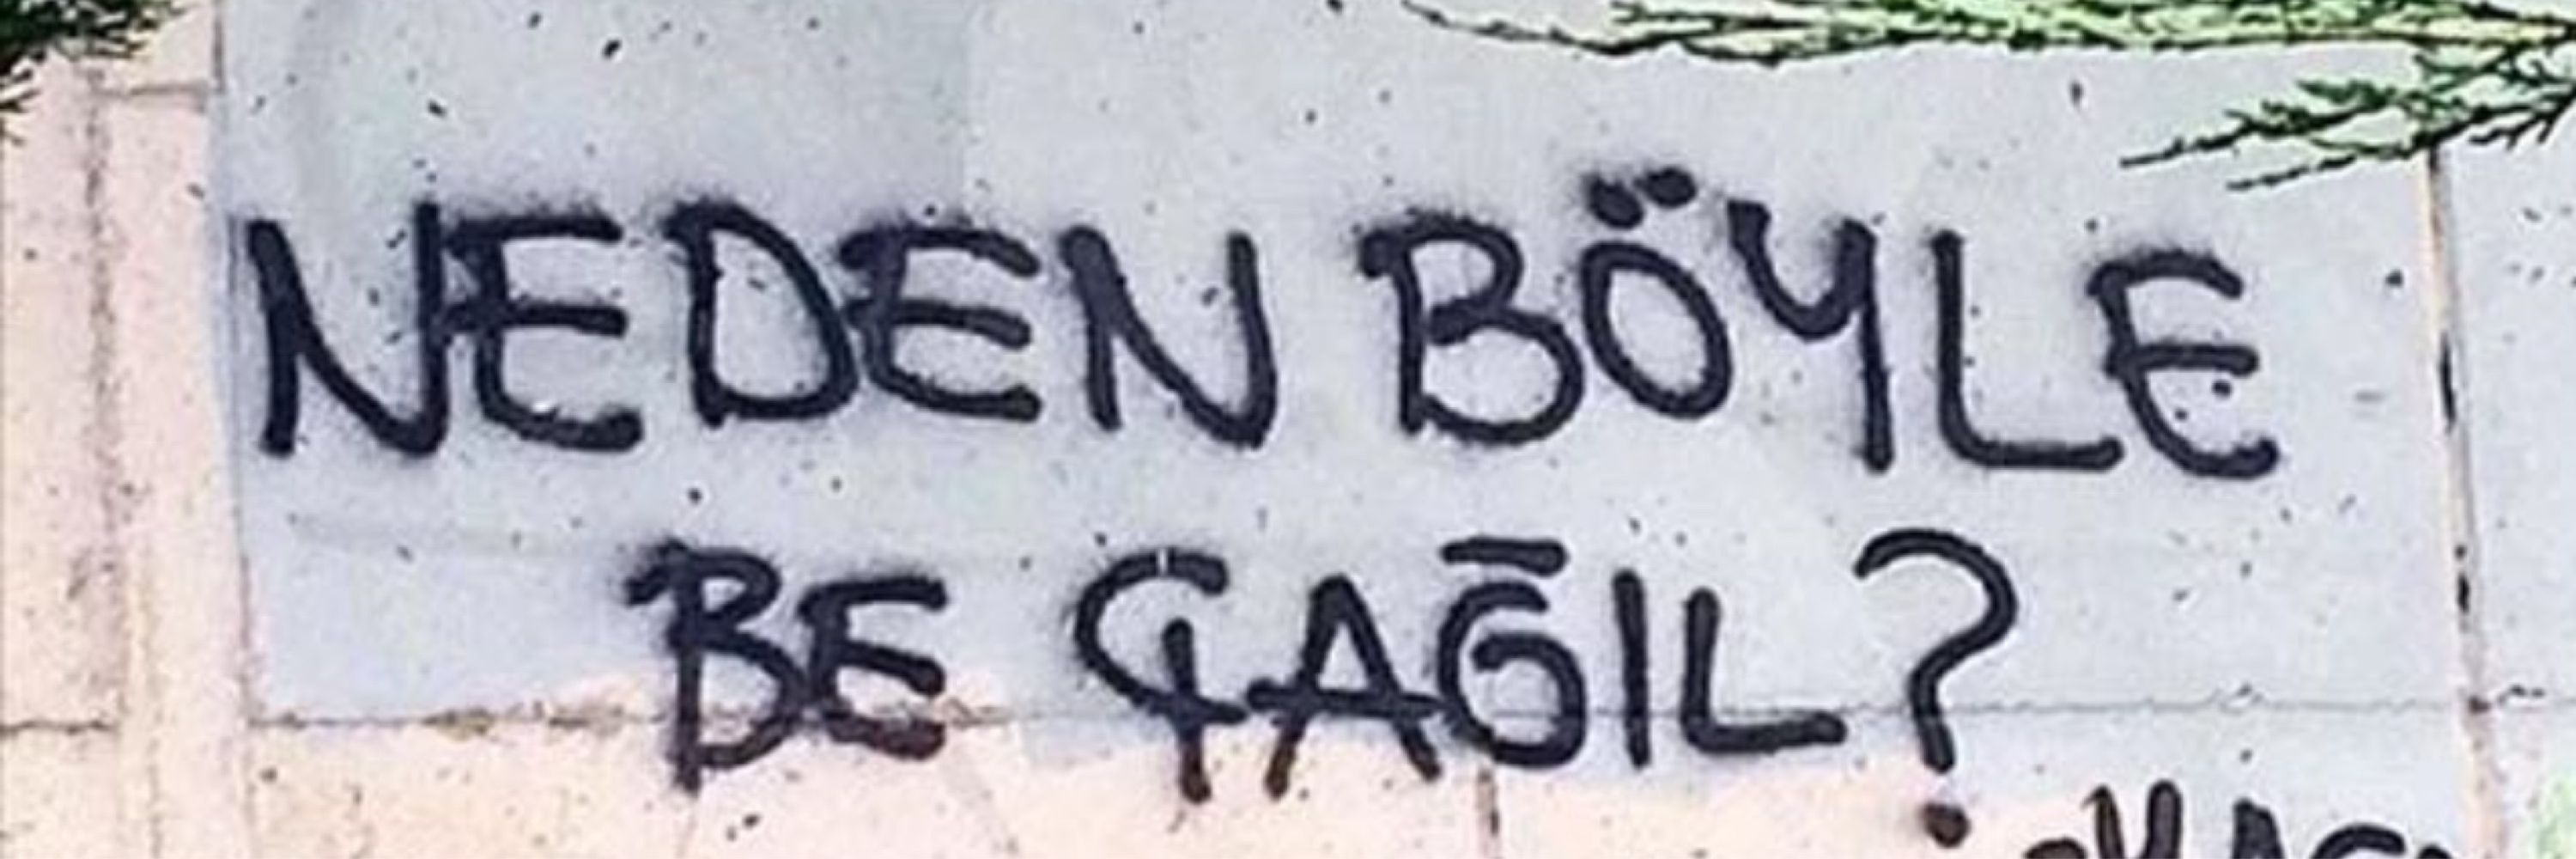 NEDEN BÖYLE
BE ÇAĞIL?